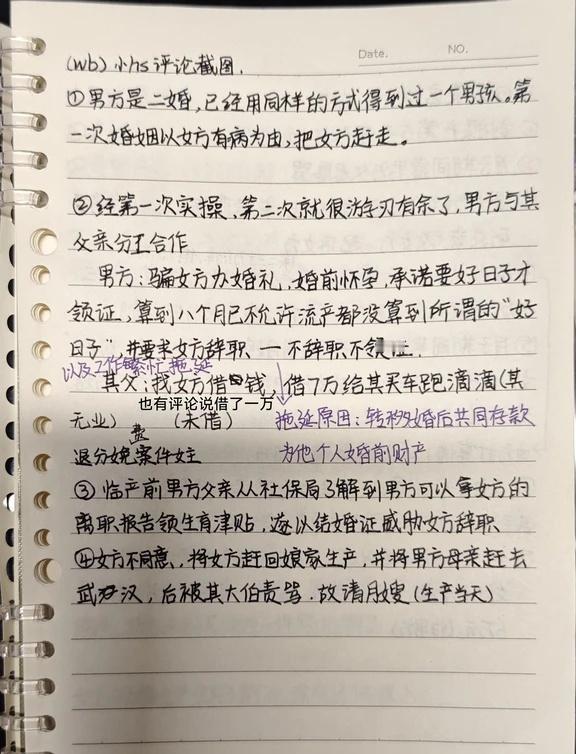 Date. NO.
(wb) 小hs评论截图.
①男方是二婚,已经用同样的方式得到过一个男孩。第
一次婚姻以女方有病为由,把女方赶走。
②经第一次实操,第二次就很游刃有余了,男方与其
父亲分工合作
男方:骗女方办婚礼,婚前怀孕,承诺要好日子才
领证,算到八个月已不允许流产都没算到所谓的“好
日子”,并要求女方辞职——不辞职不领证.
以及工作繁忙拖延
其父:找女方借钱,借7万给其买车跑滴滴(其
也有评论说借了一万
无业) (未借) 拖延原因:转移婚后共同存款
费
退分娩案件女主 为他个人婚前财产
③临产前男方父亲从社保局了解到男方可以拿女方的
离职报告领生育津贴,遂以结婚证威胁女方辞职
④女方不同意,将女方赶回娘家生产,并将男方母亲赶去
武汉,后被其大伯责骂.故请月嫂(生产当天)